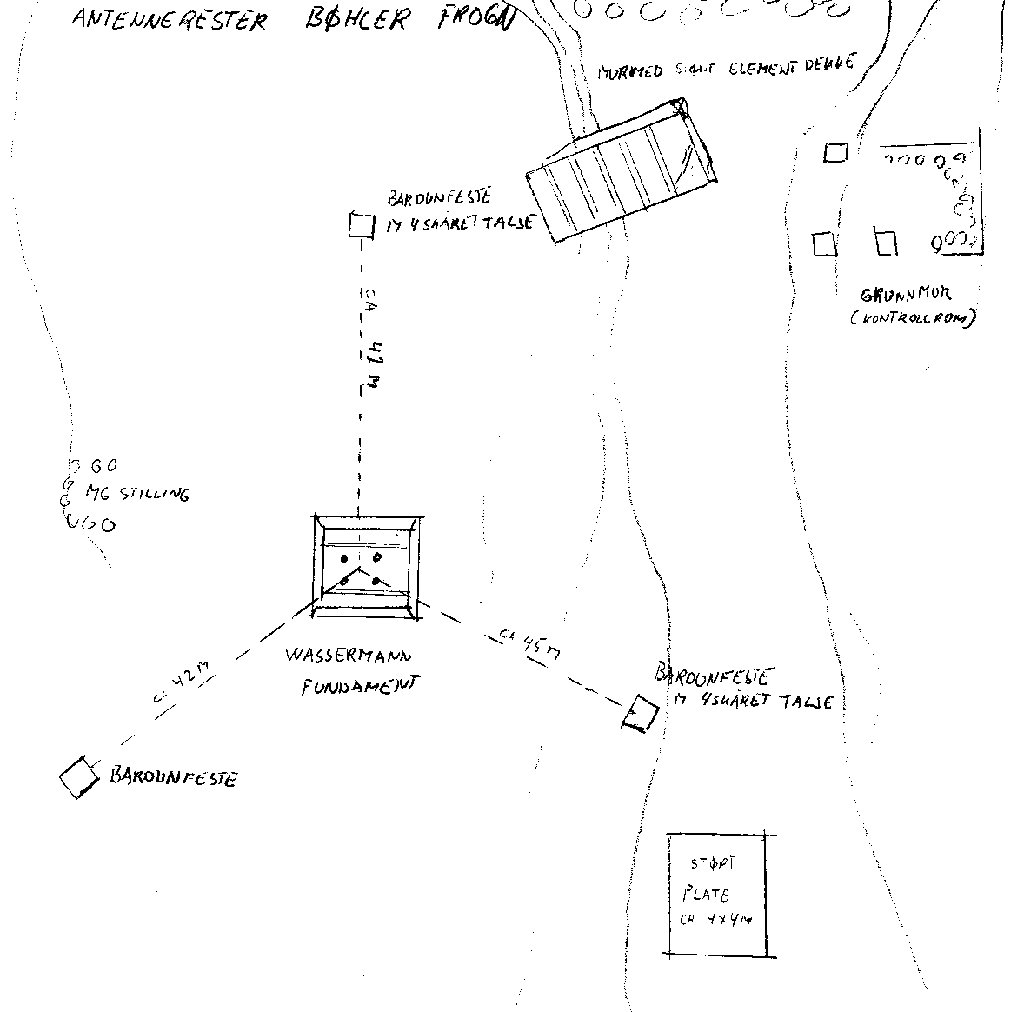 ANTENNERESTER BØHLER FROGN
MUR MED ELEMENT DEKKE
BARDUNFESTE
M 4 SKÅRET TALJE
CA 42 M
GRUNNMUR
(KONTROLLROM)
MG STILLING
WASSERMANN
FUNDAMENT
CA 42 M
CA 45 M
BARDUNFESTE
M 4 SKÅRET TALJE
BARDUNFESTE
STØPT
PLATE
CA 4 X 4 M